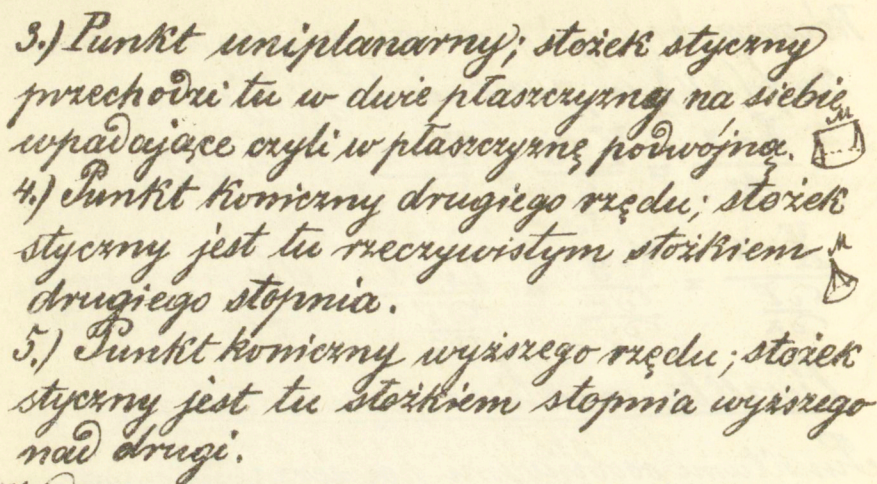 3.) Punkt uniplanarny; stożek styczny
przechodzi tu w dwie płaszczyzny na siebie
M
wpadające czyli w płaszczyznę podwójną.
4.) Punkt koniczny drugiego rzędu; stożek
styczny jest tu rzeczywistym stożkiem
M
drugiego stopnia.
5.) Punkt koniczny wyższego rzędu; stożek
styczny jest tu stożkiem stopnia wyższego
nad drugi.